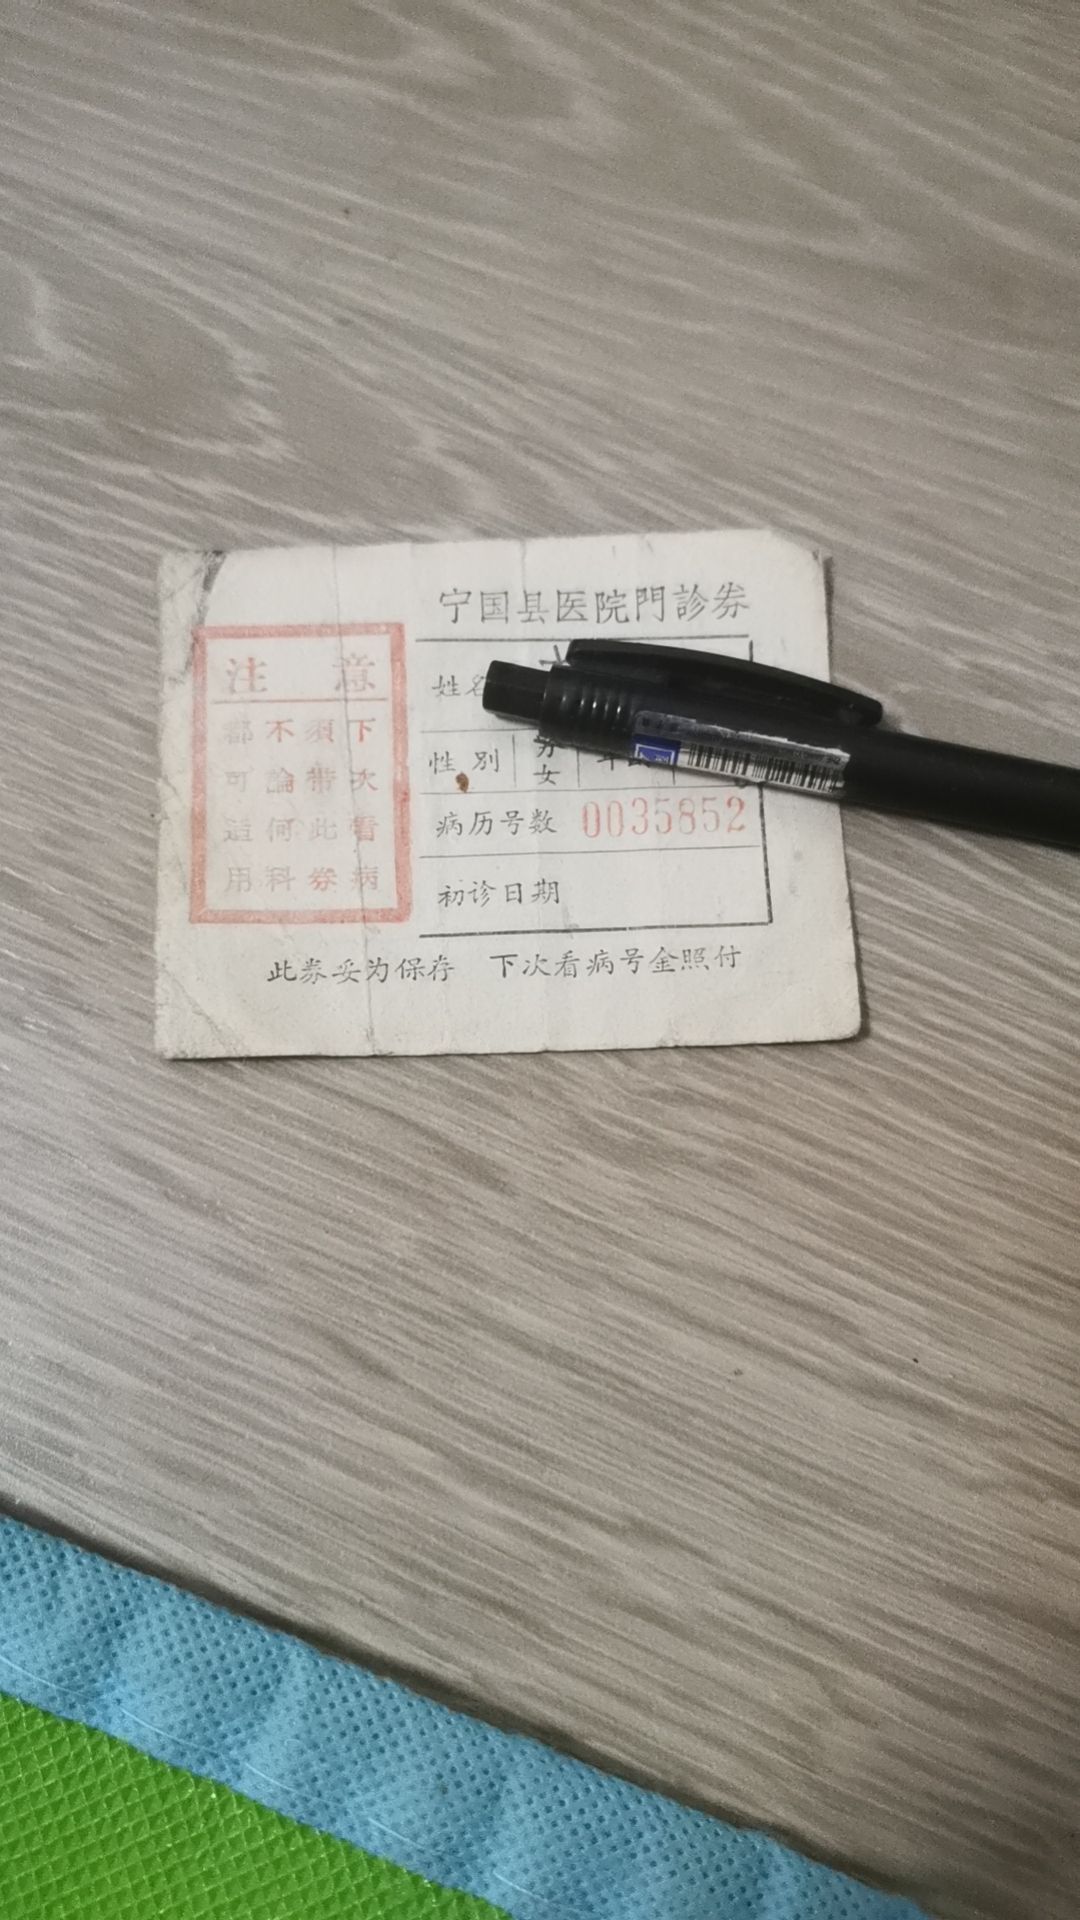 宁国县医院門診券
姓名
性別
男
女
年
病历号数 0035852
初诊日期
注 意
下次看病
須带此券
不論何科
都可适用
此券妥为保存 下次看病号金照付